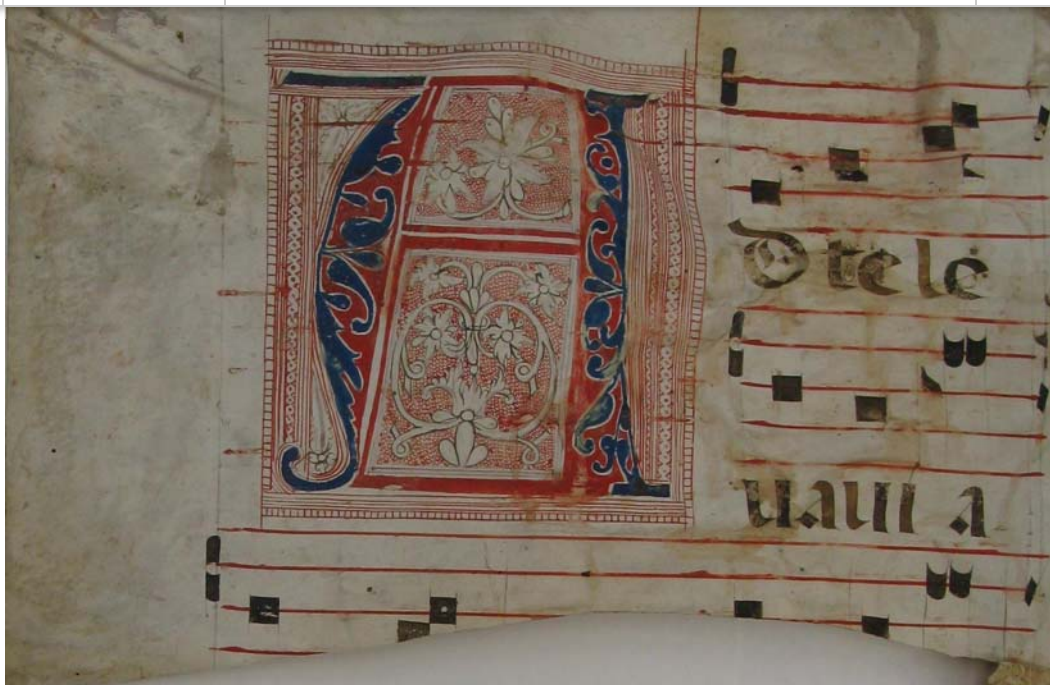 Ad te le
uaui a